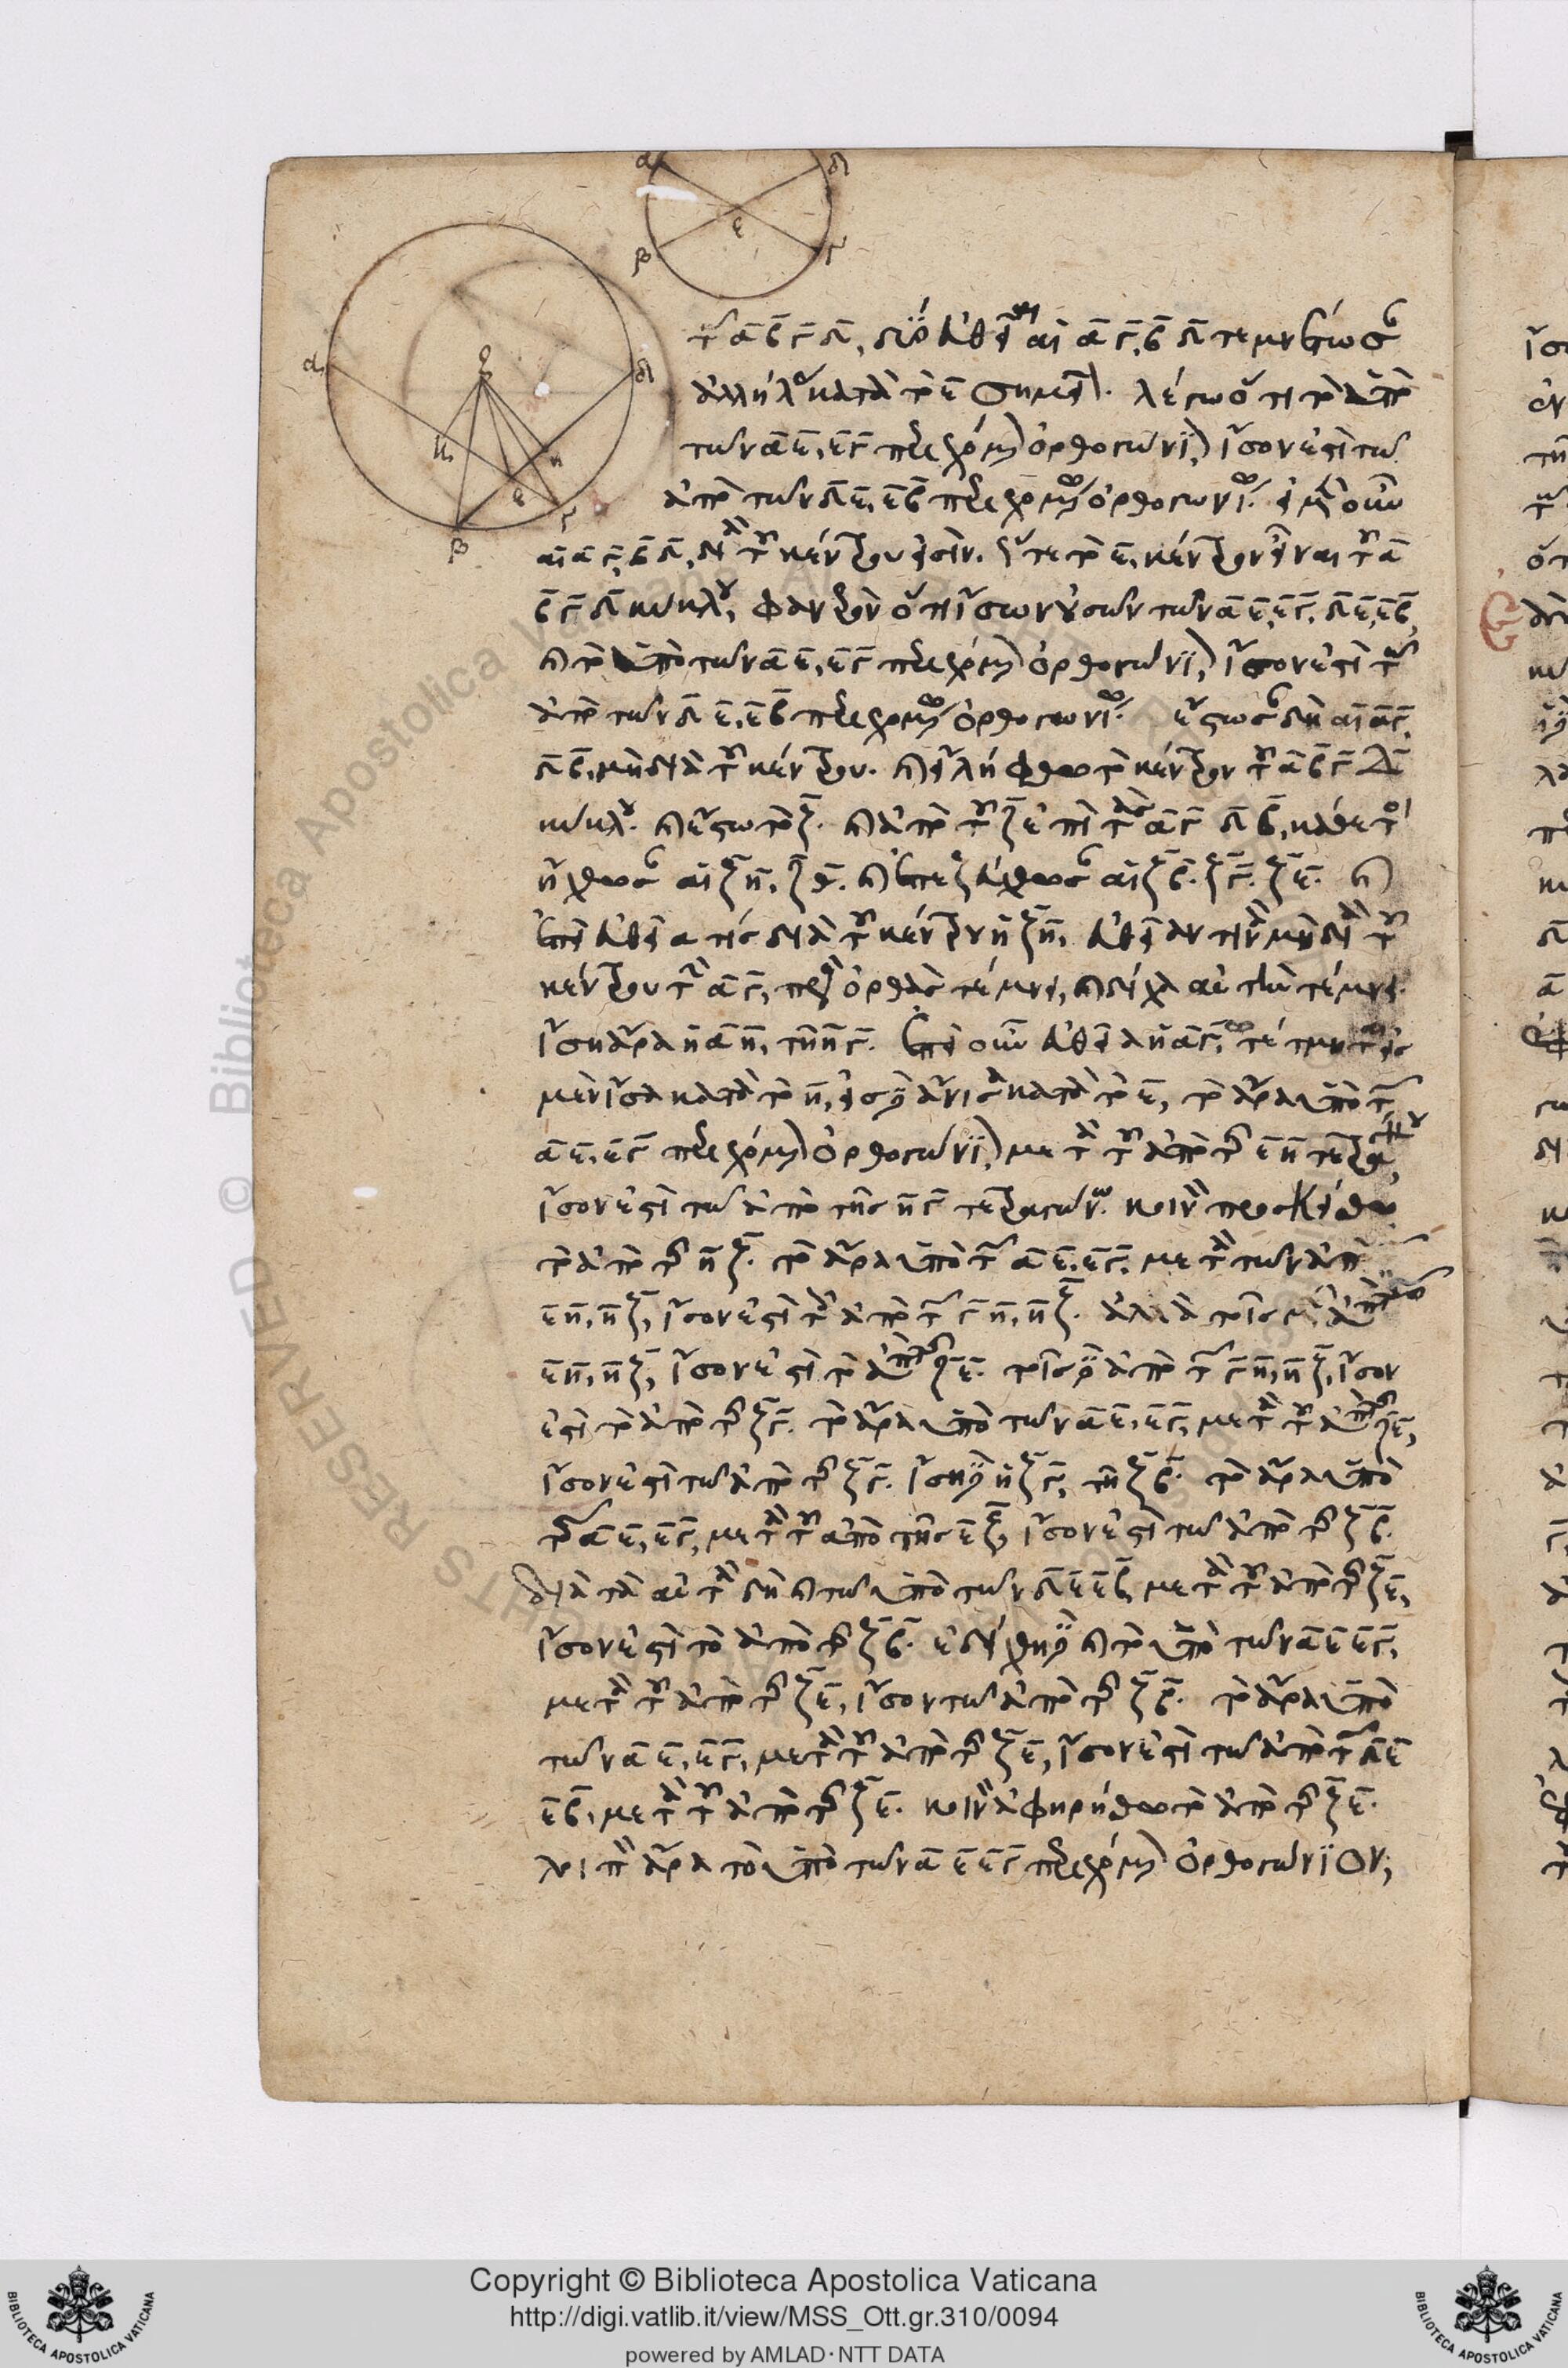 α δ
ε
β γ
ζ
α δ
κ η
ε γ
β
τῷ α̅β̅γ̅δ̅, δύο εὐθεῖαι αἱ α̅γ̅, β̅δ̅ τεμνέτωσαν
ἀλλήλας κατὰ τὸ ε̅ σημεῖον. λέγω ὅτι τὸ ὑπὸ
τῶν α̅ε̅, ε̅γ̅ περιεχόμενον ὀρθογώνιον, ἴσον ἐστὶ τῷ
ὑπὸ τῶν δ̅ε̅, ε̅β̅ περιεχομένῳ ὀρθογωνίῳ. εἰ μὲν οὖν
αἱ α̅γ̅, β̅δ̅, διὰ τοῦ κέντρου εἰσὶν. ὥστε τὸ ε̅, κέντρον εἶναι τοῦ α̅
β̅γ̅δ̅ κύκλου, φανερὸν ὅτι ἴσων οὐσῶν τῶν α̅ε̅, ε̅γ̅, δ̅ε̅, ε̅β̅,
καὶ τὸ ὑπὸ τῶν α̅ε̅, ε̅γ̅ περιεχόμενον ὀρθογώνιον, ἴσον ἐστὶ τῷ
ὑπὸ τῶν δ̅ε̅, ε̅β̅ περιεχομένῳ ὀρθογωνίῳ. ἔστωσαν δὴ αἱ α̅γ̅,
δ̅β̅, μὴ διὰ τοῦ κέντρου. καὶ εἰλήφθω τὸ κέντρον τοῦ α̅β̅γ̅δ̅
κύκλου. καὶ ἔστω τὸ ζ̅. καὶ ἀπὸ τοῦ ζ̅ ἐπὶ τὰς α̅γ̅ δ̅β̅, κάθετοι
ἤχθωσαν αἱ ζ̅η̅, ζ̅θ̅. καὶ ἐπεζεύχθωσαν αἱ ζ̅β̅. ζ̅γ̅. ζ̅ε̅. καὶ
ἐπεὶ εὐθεῖα τίς διὰ τοῦ κέντρου ἡ ζ̅η̅, εὐθεῖάν τινα μὴ διὰ τοῦ
κέντρου τὴν α̅γ̅, πρὸς ὀρθὰς τέμνει, καὶ δίχα αὐτὴν τέμνει.
ἴση ἄρα ἡ α̅η̅, τῇ η̅γ̅. ἐπεὶ οὖν εὐθεῖα ἡ α̅γ̅, τέτμηται εἰς
μὲν ἴσα κατὰ τὸ η̅, εἰς δὲ ἄνισα κατὰ τὸ ε̅, τὸ ἄρα ὑπὸ τῶν
α̅ε̅, ε̅γ̅ περιεχόμενον ὀρθογώνιον, μετὰ τοῦ ἀπὸ τῆς ε̅η̅ τετραγώνου,
ἴσον ἐστὶ τῷ ἀπὸ τῆς η̅γ̅ τετραγώνῳ. κοινὸν προσκείσθω
τὸ ἀπὸ τῆς η̅ζ̅. τὸ ἄρα ὑπὸ τῶν α̅ε̅, ε̅γ̅, μετὰ τῶν ἀπὸ τῶν
ε̅η̅, η̅ζ̅, ἴσον ἐστὶ τοῖς ἀπὸ τῶν γ̅η̅, η̅ζ̅. ἀλλὰ τοῖς μὲν ἀπὸ τῶν
ε̅η̅, η̅ζ̅, ἴσον ἐστὶ τὸ ἀπὸ τῆς ζ̅ε̅. τοῖς δὲ ἀπὸ τῶν γ̅η̅, η̅ζ̅, ἴσον
ἐστὶ τὸ ἀπὸ τῆς ζ̅γ̅. τὸ ἄρα ὑπὸ τῶν α̅ε̅, ε̅γ̅, μετὰ τοῦ ἀπὸ τῆς ζ̅ε̅,
ἴσον ἐστὶ τῷ ἀπὸ τῆς ζ̅γ̅. ἴση δὲ ἡ ζ̅γ̅, τῇ ζ̅β̅. τὸ ἄρα ὑπὸ
τῶν α̅ε̅, ε̅γ̅, μετὰ τοῦ ἀπὸ τῆς ε̅ζ̅, ἴσον ἐστὶ τῷ ἀπὸ τῆς ζ̅β̅.
διὰ τὰ αὐτὰ δὴ καὶ τῷ ὑπὸ τῶν δ̅ε̅ ε̅β̅ μετὰ τοῦ ἀπὸ τῆς ζ̅ε̅,
ἴσον ἐστὶ τὸ ἀπὸ τῆς ζ̅β̅. ἐδείχθη δὲ καὶ τὸ ὑπὸ τῶν α̅ε̅ ε̅γ̅,
μετὰ τοῦ ἀπὸ τῆς ζ̅ε̅, ἴσον τῷ ἀπὸ τῆς ζ̅β̅. τὸ ἄρα ὑπὸ
τῶν α̅ε̅, ε̅γ̅, μετὰ τοῦ ἀπὸ τῆς ζ̅ε̅, ἴσον ἐστὶ τῷ ὑπὸ τῶν δ̅ε̅
ε̅β̅, μετὰ τοῦ ἀπὸ τῆς ζ̅ε̅. κοινὸν ἀφῃρήσθω τὸ ἀπὸ τῆς ζ̅ε̅.
λοιπὸν ἄρα τὸ ὑπὸ τῶν α̅ε̅ ε̅γ̅ περιεχόμενον ὀρθογώνιον,
© Biblioteca Apostolica Vaticana ALL RIGHTS RESERVED
Copyright © Biblioteca Apostolica Vaticana
http://digi.vatlib.it/view/MSS_Ott.gr.310/0094
powered by AMLAD·NTT DATA
BIBLIOTECA APOSTOLICA VATICANA
BIBLIOTECA APOSTOLICA VATICANA